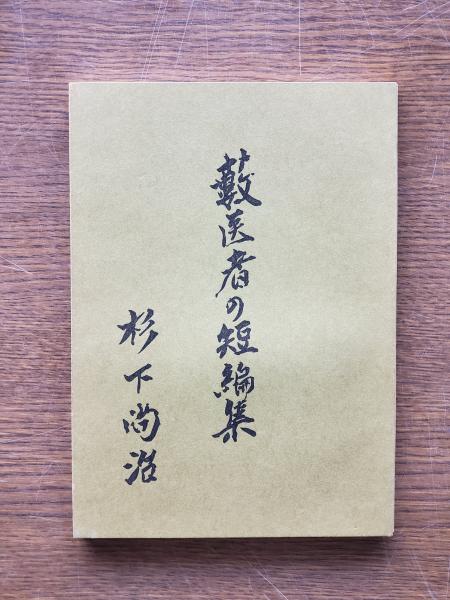 藪医者の短編集
杉下尚治